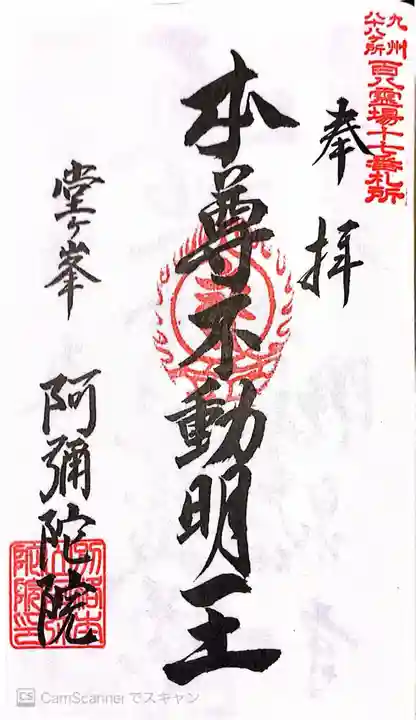 九州
八十八ヶ所
百八霊場十七番札所
奉拝
本尊不動明王
堂ヶ峯 阿彌陀院
CS CamScanner でスキャン